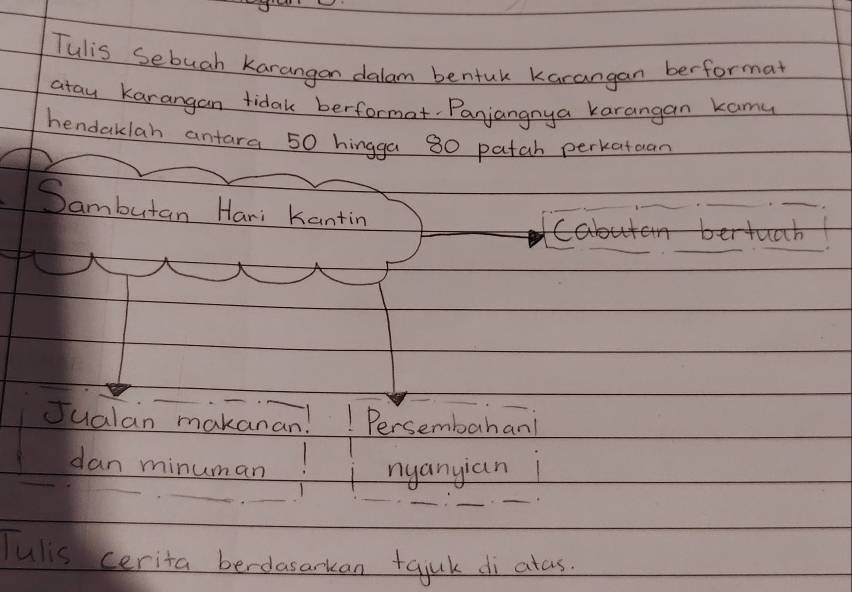 Tulis Sebuah Karangan dalam bentuk karangan berformat
atau karangan tidak berformat. Panjangnya karangan kamu
hendaklah antara 50 hingga 80 patah perkataan
Sambutan Hari Kantin
Cabutan bertuah
Jualan makanan
dan minuman
Persembahan
nyanyian
Tulis cerita berdasarkan tajuk di atas.